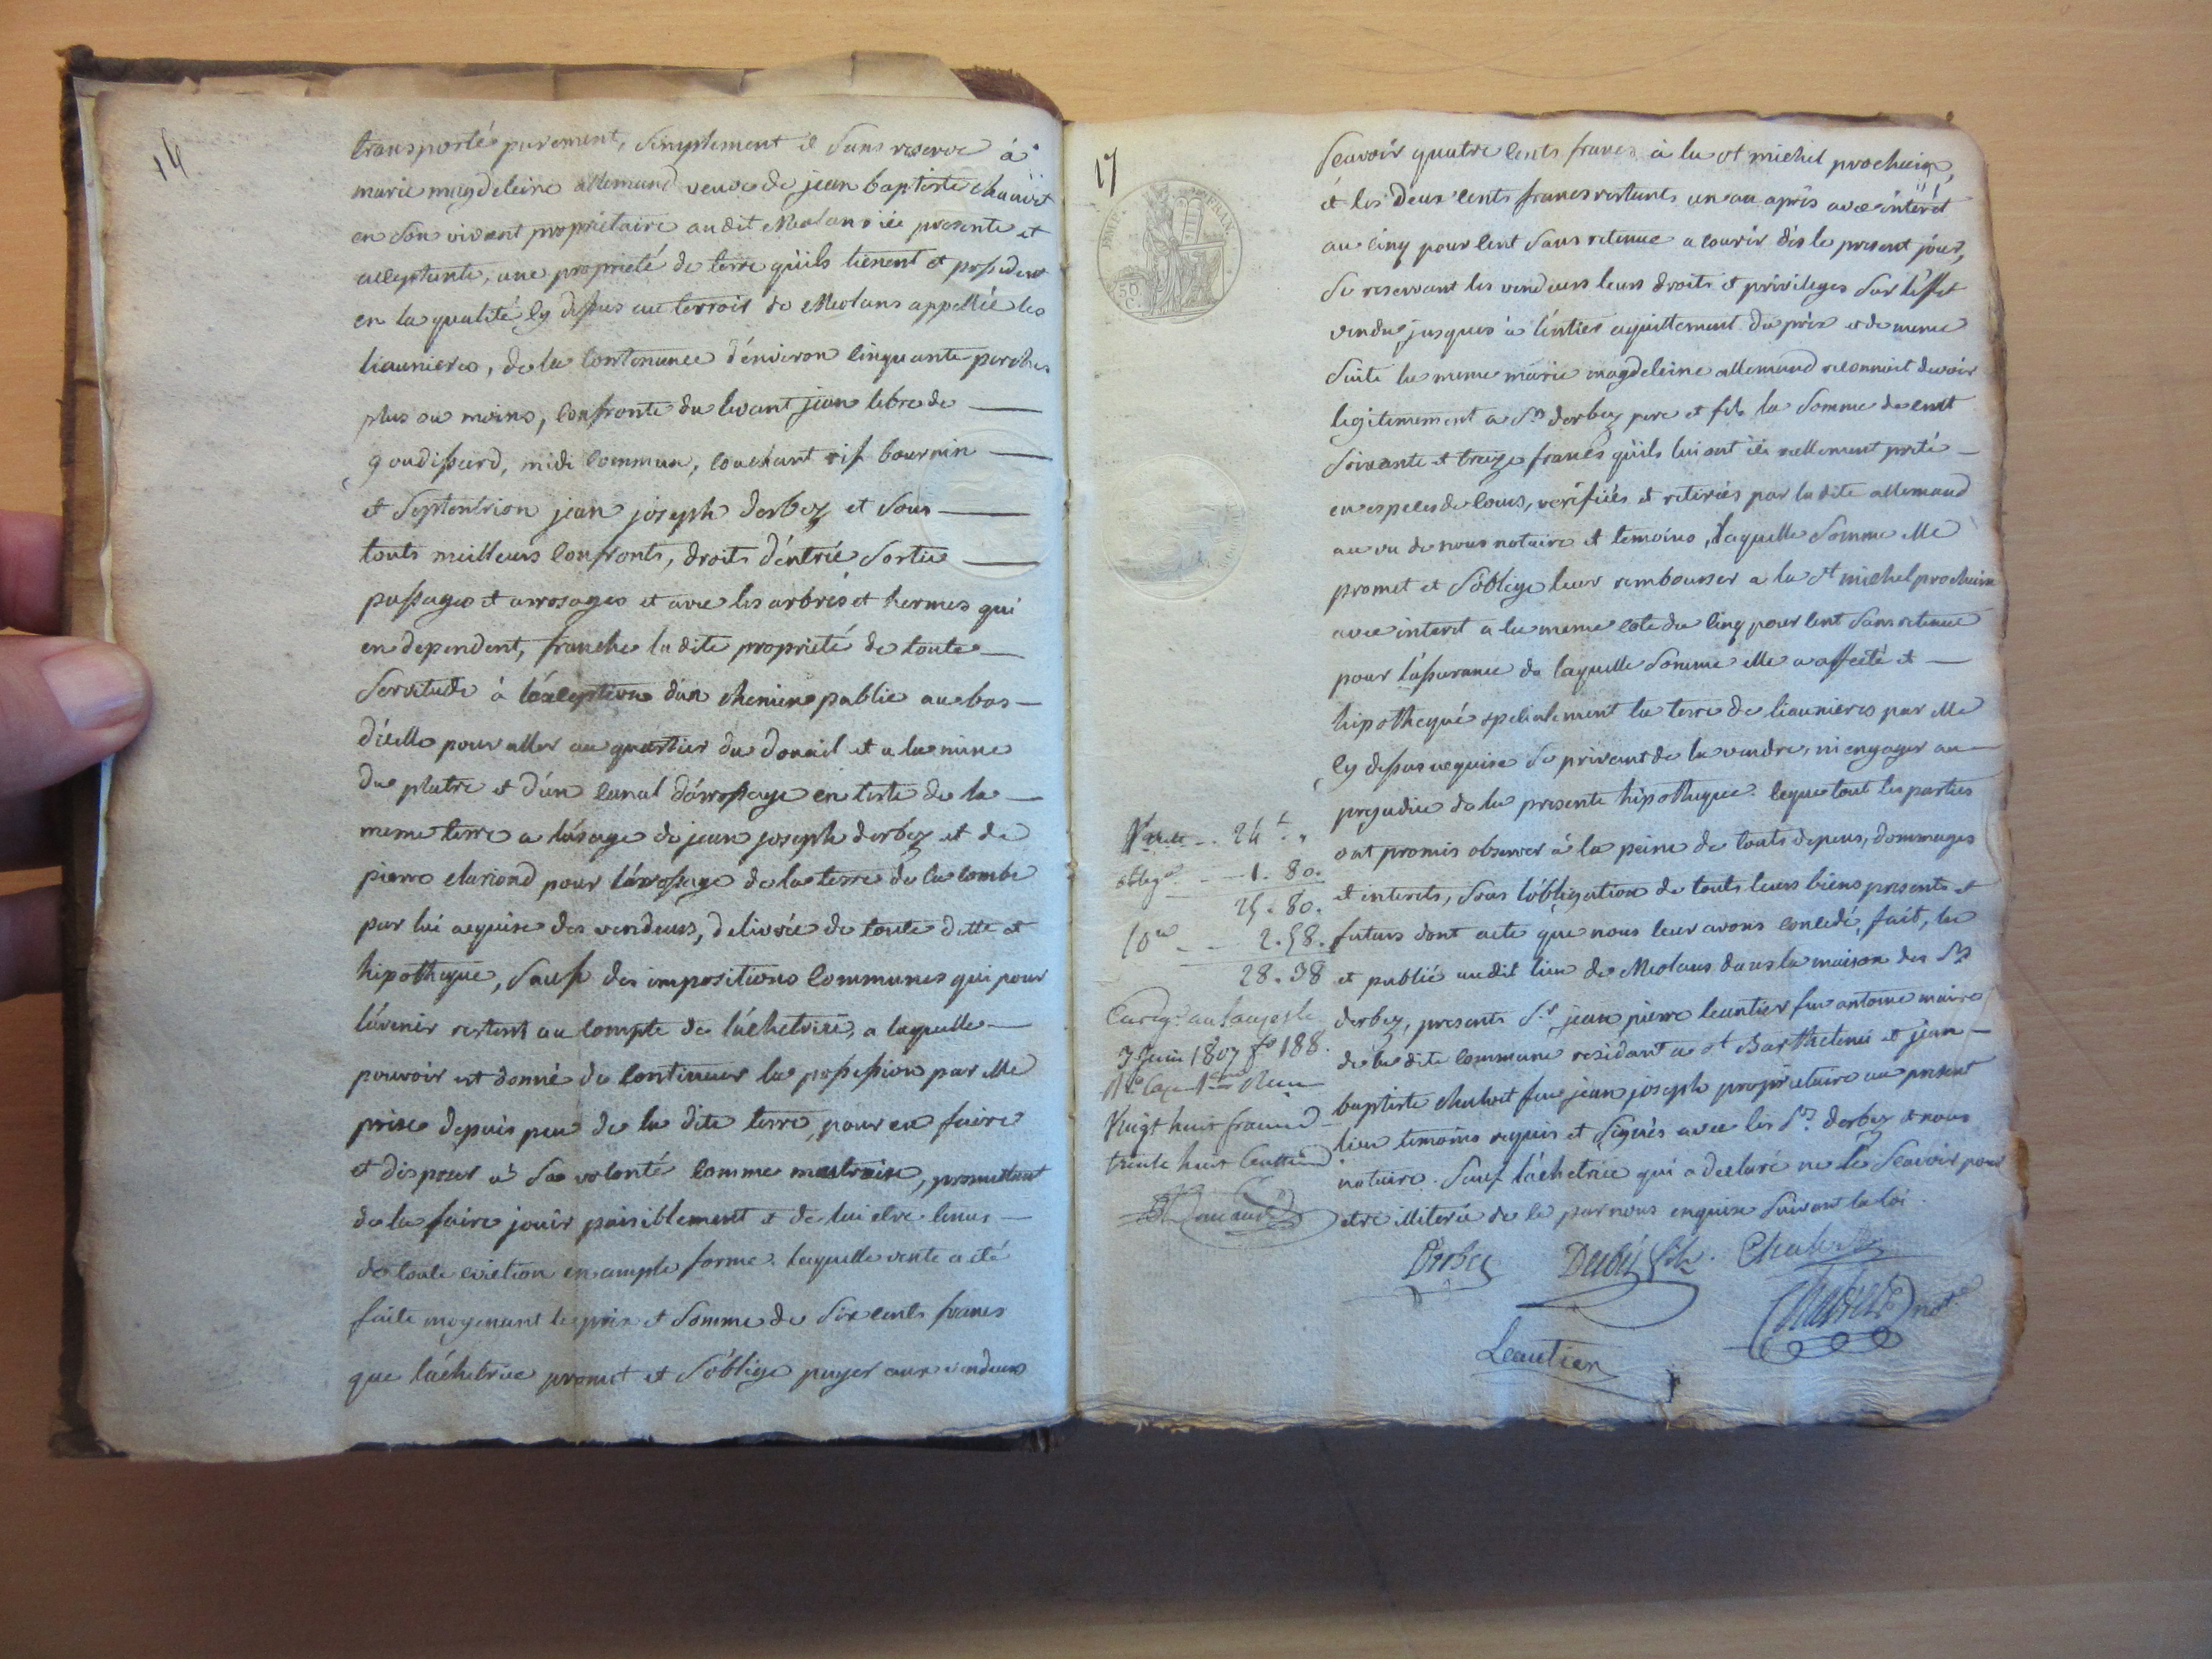 transporté purement, simplement et sans reserve à
marie magdeleine allemand veuve de jean baptiste
en son vivant proprietaire audit Meolans ici presente et
acceptante, une proprieté de terre qu'ils tienent et possedent
en la qualité cy dessus au terroir de Meolans appellée les
liaunieres, de la contenance d'environ cinquante perches
plus ou moins, confronte du levant jean lebre de
goudissard, midi commun, couchant rif bournin
et septentrion jean joseph derbez et sous
touts meilleurs confronts, droits d'entrée sortie
passages et arrosages et avec les arbres et hermes qui
en dependent, franche la dite proprieté de toute
servitude à l'exception d'un chemin public au bas
d'icelle pour aller au quartier du et a la mine
du platre et d'un canal d'arrosage en teste de la
meme terre a l'usage de jean joseph derbez et de
pierre clariond pour l'arrosage de la terre de la combe
par lui acquise des vendeurs, delivrée de toute dette et
hipotheque, sauf des impositions communes qui pour
l'avenir restent au compte de l'achetrice, a laquelle
pouvoir est donné de continuer la possession par elle
prise depuis peu de la dite terre, pour en faire
et disposer à sa volonté comme maitraise, promettant
de la faire jouir paisiblement et de lui etre tenus
de toute eviction en ample forme. laquelle vente a été
faite moyenant le prix et somme de six cents francs
que l'achetrice promet et s'oblige payer aux vendeurs
17
FRAN.
50
C.
scavoir quatre cents francs à la st michel prochaine,
et les deux cents francs restants un an après avec interet
au cinq pour cent sans retenue a courir dès le present jour,
se reservant les vendeurs leurs droits et privileges sur l'effet
vendu, jusques à l'entier aquittement du prix et de meme
suite la meme marie magdeleine allemand reconnoit devoir
legitimement a Srs derbez pere et fils la somme de cent
soixante et treize francs qu'ils lui ont ici reellement preté
en especes de cours, verifiées et retirées par la dite allemand
au vu de nous notaire et temoins, laquelle somme elle
promet et s'oblige leur rembourser a la st michel prochaine
avec interet a la meme cote du cinq pour cent sans retenue
pour l'assurance de laquelle somme elle a affecté et
hipothequé specialement la terre de liaunieres par elle
cy dessus acquise se privant de la vendre, ni engager au
prejudice de la presente hipotheque. ce que tout les parties
ont promis observer à la peine de touts depens, dommages
et interets, sous l'obligation de touts leurs biens presents et
futurs dont acte que nous leur avons concedé, fait, lu
et publié audit lieu de Meolans dans la maison des Srs
derbez, presents Sr jean pierre leautier feu antoine maire
de la dite commune residant a st Barthelemi et jean
baptiste feu jean joseph proprietaire au present
lieu temoins requis et signés avec les Srs derbez et nous
notaire. sauf l'achetrice qui a declaré ne le scavoir pour
etre illiterée de ce par nous enquise suivant la loi.
24 f. "
oblig. 1. 80.
25. 80.
10e 2. 58.
28. 38
3 Juin 1807 fo 188.
Vingt huit francs
trente huit
Derbez
Derbez fils.
Leautier